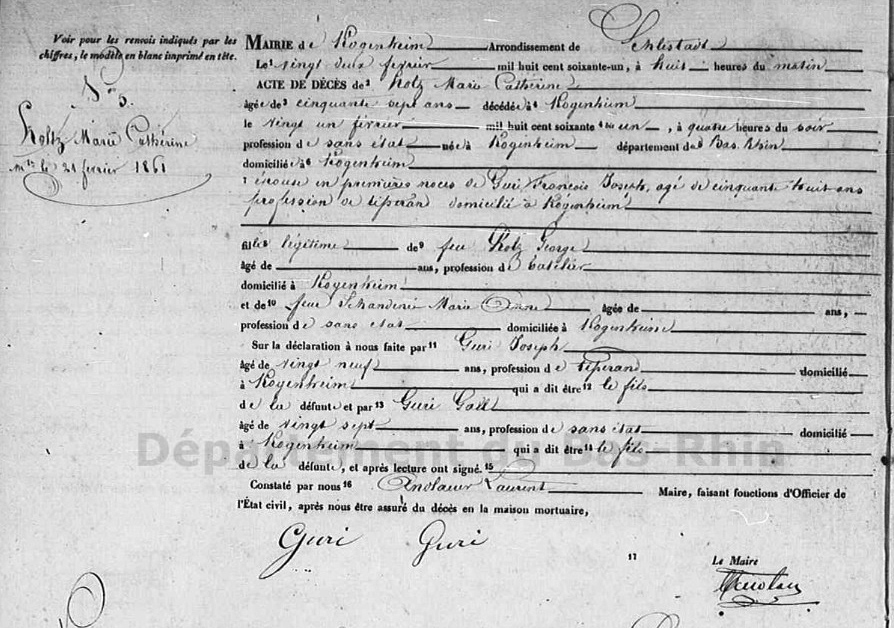 Voir pour les renvois indiqués par les
chiffres, le modèle en blanc imprimé en tête.
No
5.
Holtz Marie Cathérine
le 21 février 1861
MAIRIE de Kogenheim Arrondissement de Schlestadt
Le 1 vingt deux février mil huit cent soixante-un, à huit heures du matin
ACTE DE DÉCÈS de 2 Holz Marie Cathérine
âgée de 3 cinquante sept ans décédée à 4 Kogenheim
le vingt un février mil huit cent soixante 4 bis un, à quatre heures du soir
profession de sans état née à Kogenheim département de 5 Bas-Rhin
domiciliée à 6 Kogenheim
7 épouse en premières noces de Guri François Joseph, agé de cinquante huit ans
profession de tisserand domicilié à Kogenheim
fille 8 légitime de 9 feu Holz George
âgé de ans, profession de batelier
domicilié à Kogenheim
et de 10 feue Marie Anne âgée de ans,
profession de sans état domiciliée à Kogenheim
Sur la déclaration à nous faite par 11 Guri Joseph
âgé de vingt neuf ans, profession de tisserand domicilié
à Kogenheim qui a dit être 12 le fils
de la défunte et par 13 Guri Gall
âgé de vingt sept ans, profession de sans état domicilié
à Kogenheim qui a dit être 14 le fils
de la défunte, et après lecture ont signé. 15
Constaté par nous 16 Andlauer Laurent Maire, faisant fonctions d'Officier de
l'État civil, après nous être assuré du décès en la maison mortuaire,
Guri Guri
17
Le Maire
Département du Bas-Rhin